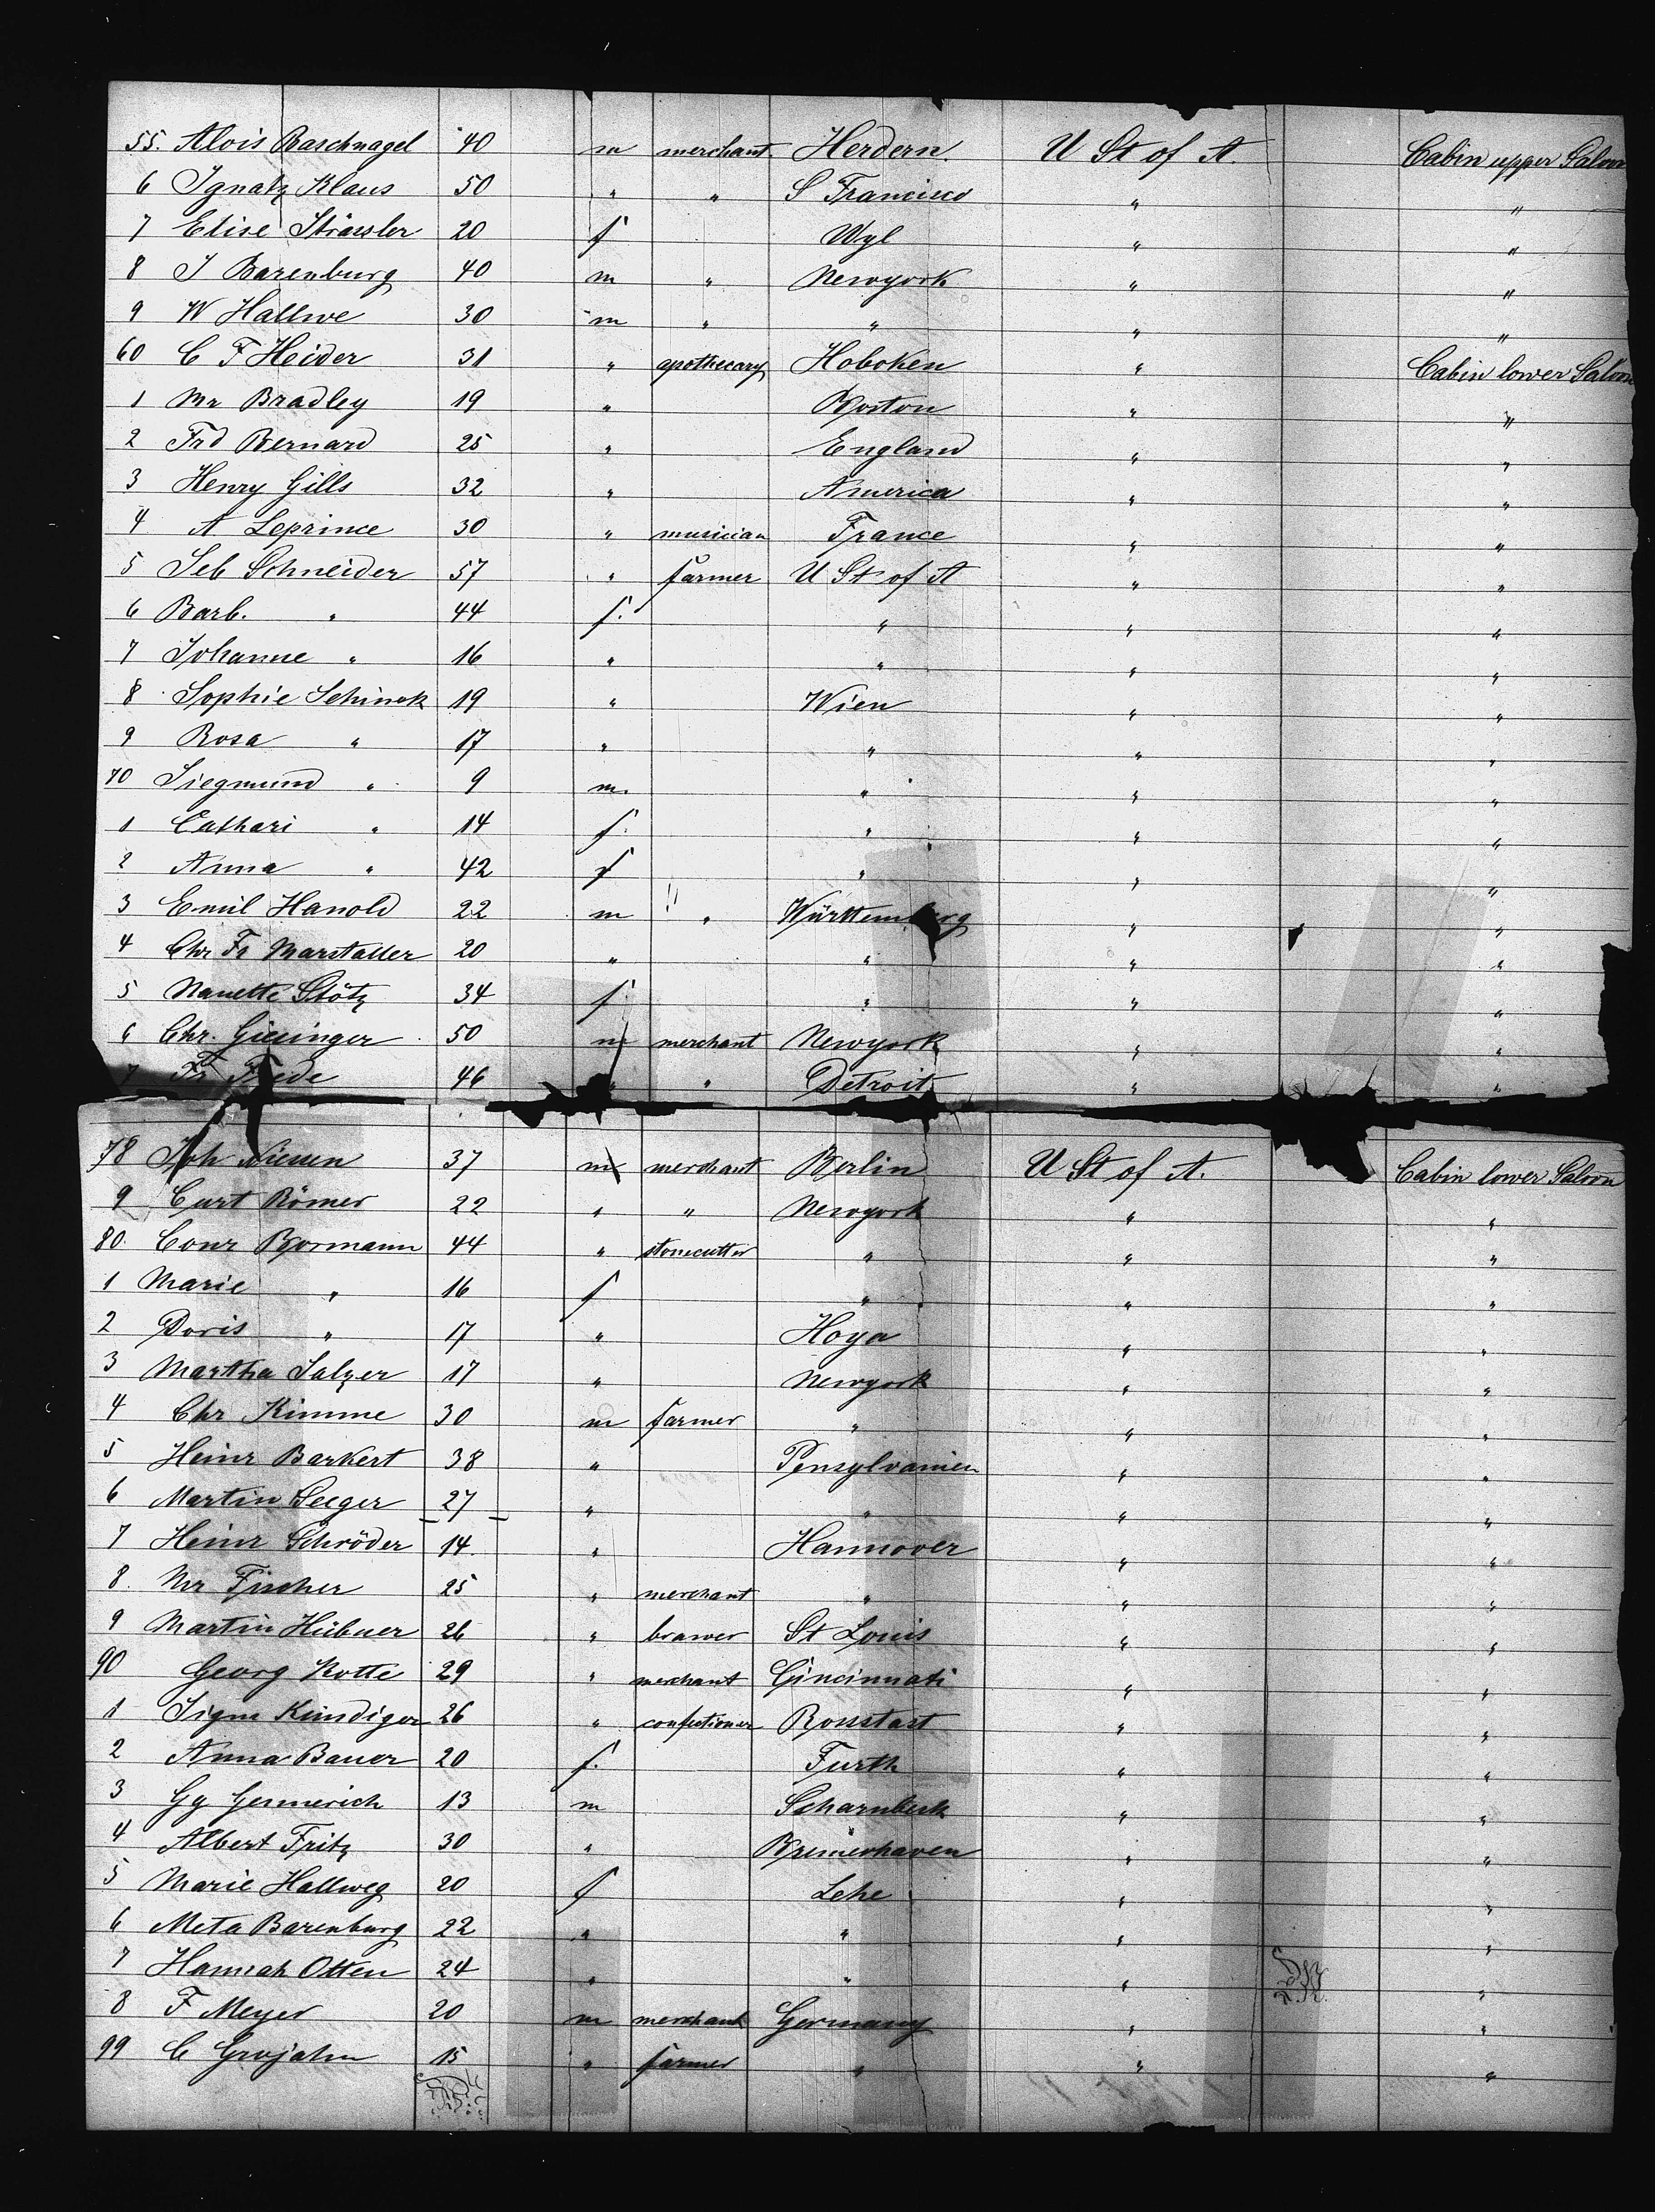 55. Alois Raschnagel 40 m merchant. Herdern. U St of A. Cabin upper Saloon
6 Ignatz Klaus 50 " " S Francisco " "
7 Elise Strässler 20 f Wyl " "
8 J Barenburg 40 m " Newyork " "
9 W Hallwe 30 m " " " "
60 C F Heider 31 " apothecary Hoboken " Cabin lower Saloon
1 Mr Bradley 19 " Boston " "
2 Frd Bernard 25 " England " "
3 Henry Gills 32 " America " "
4 A Leprince 30 " musician France " "
5 Seb Schneider 57 " farmer U St of A " "
6 Barb. " 44 f. " " "
7 Johanne " 16 " " " "
8 Sophie Schinok 19 " Wien " "
9 Rosa " 17 " " " "
70 Siegmund " 9 m. " " "
1 Cathari " 14 f. " " "
2 Anna " 42 f " " "
3 Emil Hanold 22 m " Württemberg " "
4 Chr Fr Marstaller 20 " " " "
5 Nanette Stötz 34 f. " " "
6 Chr. Giesinger 50 m merchant Newyork " "
7 Fr Frede 46 " " Detroit " "
78 Joh 37 m merchant Berlin U St of A. Cabin lower Saloon
9 Curt Römer 22 " " Newyork " "
80. Conr Bormann 44 " stonecutter " " "
1 Marie " 16 f " " "
2 Doris " 17 " Hoya " "
3 Martha Salzer 17 " Newyork " "
4 Chr Kimme 30 m farmer " " "
5 Heinr Barkert 38 " Pensylvanien " "
6 Martin Seeger 27 " " " "
7 Heinr Schröder 14. " Hannover " "
8. Mr Fischer 25 " merchant " " "
9 Martin Hübner 26 " brawer St Louis " "
90 Georg Kotte 29 " merchant Cincinnati " "
1 Sigm Kündiger 26 " confectioner " "
2 Anna Bauer 20 f. Furth " "
3 Gg Gemmerich 13 m Scharnbeck " "
4 Albert Fritz 30 " Bremerhaven " "
5 Marie Hallweg 20 f Lehe " "
6 Meta Barenburg 22 " " " "
7 Hannah Otten 24 " " " "
8 F Meyer 20 m merchant Germany " "
99 C Grojahn 15 " farmer " " "